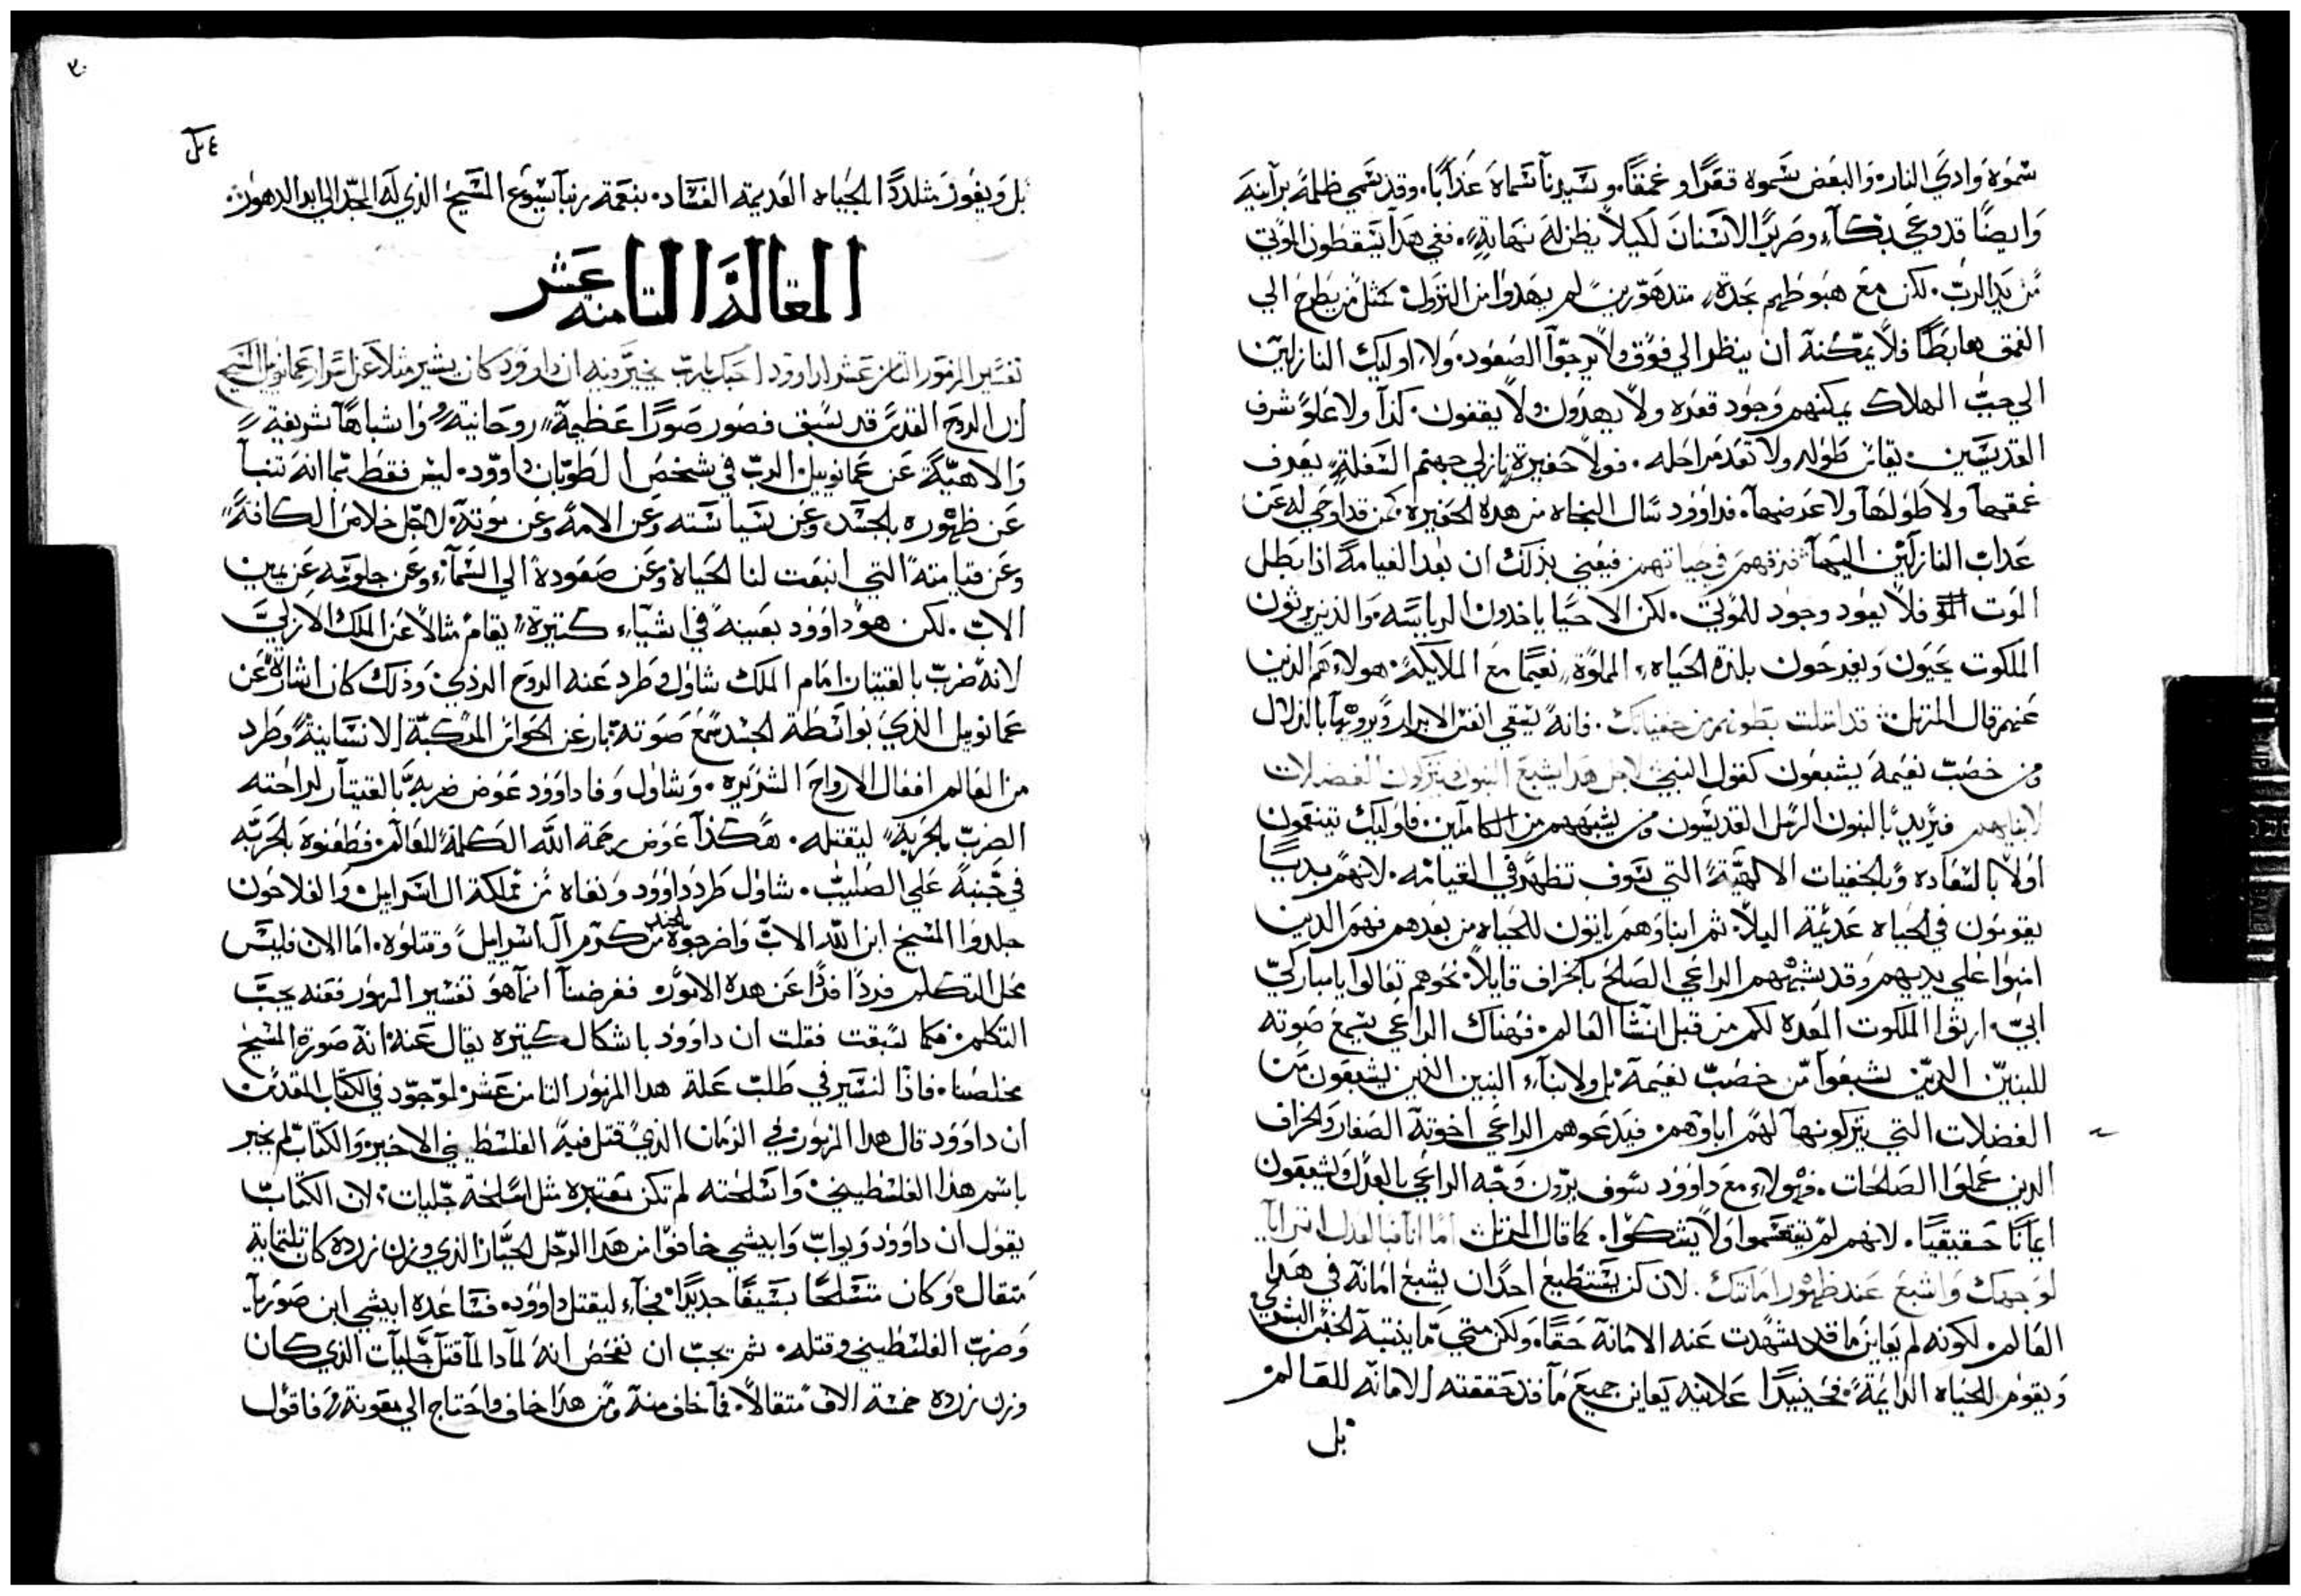 سَموهُ وَادي النار، وَالبعَض سَموه قعَرًا وعمقًا، وسَيدنا سَماهَ عَذابًا، وقد سَمي ظلمةً برانيهَ
وَايضًا قد دعي بكآء وصَريرُ الاسَنانَ لكيلاً يظن لهَ نهَايةٍ، ففي هَذا يَسقطون الموتي
مَن يَد الربّ، لكن معَ هبوطهم بحدةٍ متدهوّرين لم يهدَوا من النزول، كمثل مَن يطرح الي
العُمق هابَطًا فلا يمكنهَ أن ينظر الي فوق ولا يرجوا الصعود، ولا اوليك النازلين
الي جبّ الهلاك يمكنهم وجود قعره ولا يهدَون ولا يقفون، كذا ولا علو شرف
القديسَين، يقاس طَوله ولا تعَد مراحله، فولا حفيرة نازلي جهنم السَفلة، يعرف
عمقها ولا طولها ولا عرضها، فداوود سَال النجاه من هده الحفيره، لمن قد اوحي له عَن
عَداب النازلين اليها فنرقهم في حياتهم فيعني بذلك ان بعد القيامة اذا بَطل
الموت فلا يعَود وجود للموتي، لكن الاحيا ياخدون الرياسَه، وَالذين يرثون
الملكوت يحيون ويفرحون بلذة الحياه، المملوة نعيما معَ الملايكة، هولاء هَم الدين
عَنهم قال المرتل قد امتلت بطونهم من خفياتك، فانهَ يَسَقي انفسَ الابرار ويرويها بالزلال
ومن خصب نعَيمهَ يشبعَون كقول النبي لاجل هدا يشبعَ البنون ويتركون الفضلات
لابنايهم فيريد بالبنون الرسَل القديسَون ومن يشبههم من الكاملين، فاوليك يتنعمون
اولاً بالسَعَاده وبالخفيات الالهية التي سَوف تظهر في القيامه، لانهم بديًا
يقومَون في الحياه عَديمة البلاء ثم ابناوهم ياتون للحياه من بعدهم فهَم الدين
امنوا علي يديهم وقد يشبههم الراعي الصَالح بالخراف قايلاً نحوهم تعَالوا يا مباركي
ابي، ارثوا الملكوت المعَده لكم من قبل انشا العَالم، فهَناك الراعي يسَمع صَوته
للبنين الدين يشبعَوا من خصب نعَيمهَ، بل ولابناء البنين الدين يشبعَون من
الفضلات التي يتركونها لهم اباوهم، فيدَعوهم الراعي اخوته الصَغار والخراف
الدين عَملوا الصَالحات، فهولاء معَ داوود سَوف يرون وَجه الراعي بالعدل ويشبعَون
ايمَانًا حَقيقيًا، لانهم لم ينقسَموا ولا يشكوا، كما قال المرتل اما انا فبالعدل اترايا
لوجهك وَاشبعَ عَند ظهور امانتك، لان لن يَستطيعَ احدًا ان يشبعَ امانه في هَدا
العَالم، لكونه لم يَعاين مَا قد شهَدت عَنه الامانه حَقا، ولكن متي ما ينتبه الجنسَ البشري
وَيقوم للحَياه الدايمَة، فحينيدًا عَلانيه يَعاين جميعَ ما قد حَققته الامانه للعَالم
بل
٣٠
٤ بل
بل وَيفوز مَتلددًا بالحَياه العَديمة الفسَاد، بنعَمة ربنا يسَوع المسَيح الذي لهَ المجد الي ابد الدهور
المقالة الثامنه عَشر
تفسَير المزمور الثامن عشر لداوود احبك يارب يخبر فيه ان داوود كان يشير مثلاً عَن اسَرار عمانوييل المسَيح
ان الروح القدسَ قد سَبق فصَور صَورًا عَظيمة روحَانية واشباهًا شريفة
وَالاهيّة عَن عَمانوييل الربّ في شخص الطوبان داوود، ليسَ فقط بما انهَ تنبأ
عَن ظهوره بالجسَد وعَن سَياسَته وعَن الامهَ وعَن موتهَ، لاجل خلاص الكافة
وعَن قيامته التي انبعَت لنا الحَياة وعَن صَعَودهَ الي السَماء، وعَن جلوسَه عَن يمين
الاب، لكن هو داوود بعَينه في اشياء كثيرة يقام مثالاً عَن الملك الازلي
لانهَ ضرب بالقيتار امَام الملك شاول وطَرد عَنه الروح الردي، وَذلك كان اشارة عَن
عَمانوييل الذي بواسَطة الجسَد سَمع صَوته بارغن الحواسَ المركبة الانسَانية وطَرد
من العَالم افعَال الارواحَ الشريره، وَشاول وَفا داوود عَوض ضربه بالقيتار لراحته
الضرب بالحَربة ليقتله، هَكذا عَوض رحمة الله الكلمة للعَالم، فطَعَنوه بالحَربه
في جَنبهَ عَلي الصَليب، شاول طَرد داوود ونفاه مَن مملكة ال اسَراييل، وَالفلاحَون
جلدوا المسَيح ابن الله الاب وَاخرجوَه من كرم آل اسَراييل وَقتلوه، امَا الان فليسَ
محل التكلم فردًا فردًا عَن هده الامور، فغرضنا انما هو تفسَير المزمور فعَنه يجبَ
التكلم، فكما سَبقت فقلت ان داوود باشكال كثيره يقال عَنه انهَ صَورة المسَيح
مخلصَنا، فاذًا لنسَير في طَلب عَلة هدا المزمور الثامن عَشر الموجود في الكتاب المقدسَ
ان داوود قال هدا المزمور، في الزمان الذي قتل فيه الفلسَطيني الاخير، وَالكتاب لم يخبر
باسَم هذا الفلسَطيني، وَاسَلحته لم تكن مَعَتبره مثل اسَلحَة جليات، لان الكتاب
يقول ان داوود ويواب وَابيشي خافوا من هَدا الرجل الجبار الذي وزن زرده كان تلتمايه
مَتقال، وَكان متسَلحًا بسَيفًا جديدًا، فجاء ليقتل داوود، فسَاعده ابيشي ابن صَوريا
وَضرب الفلسَطيني وقتله، ثم يجب ان نفحص انهَ لمادا لما قتل جليات الذي كان
وزن زرده خمسَة الاف مَتقالاً، فما خاف منه ومن هذا خاف واحتاج الي معَونة، فاقول